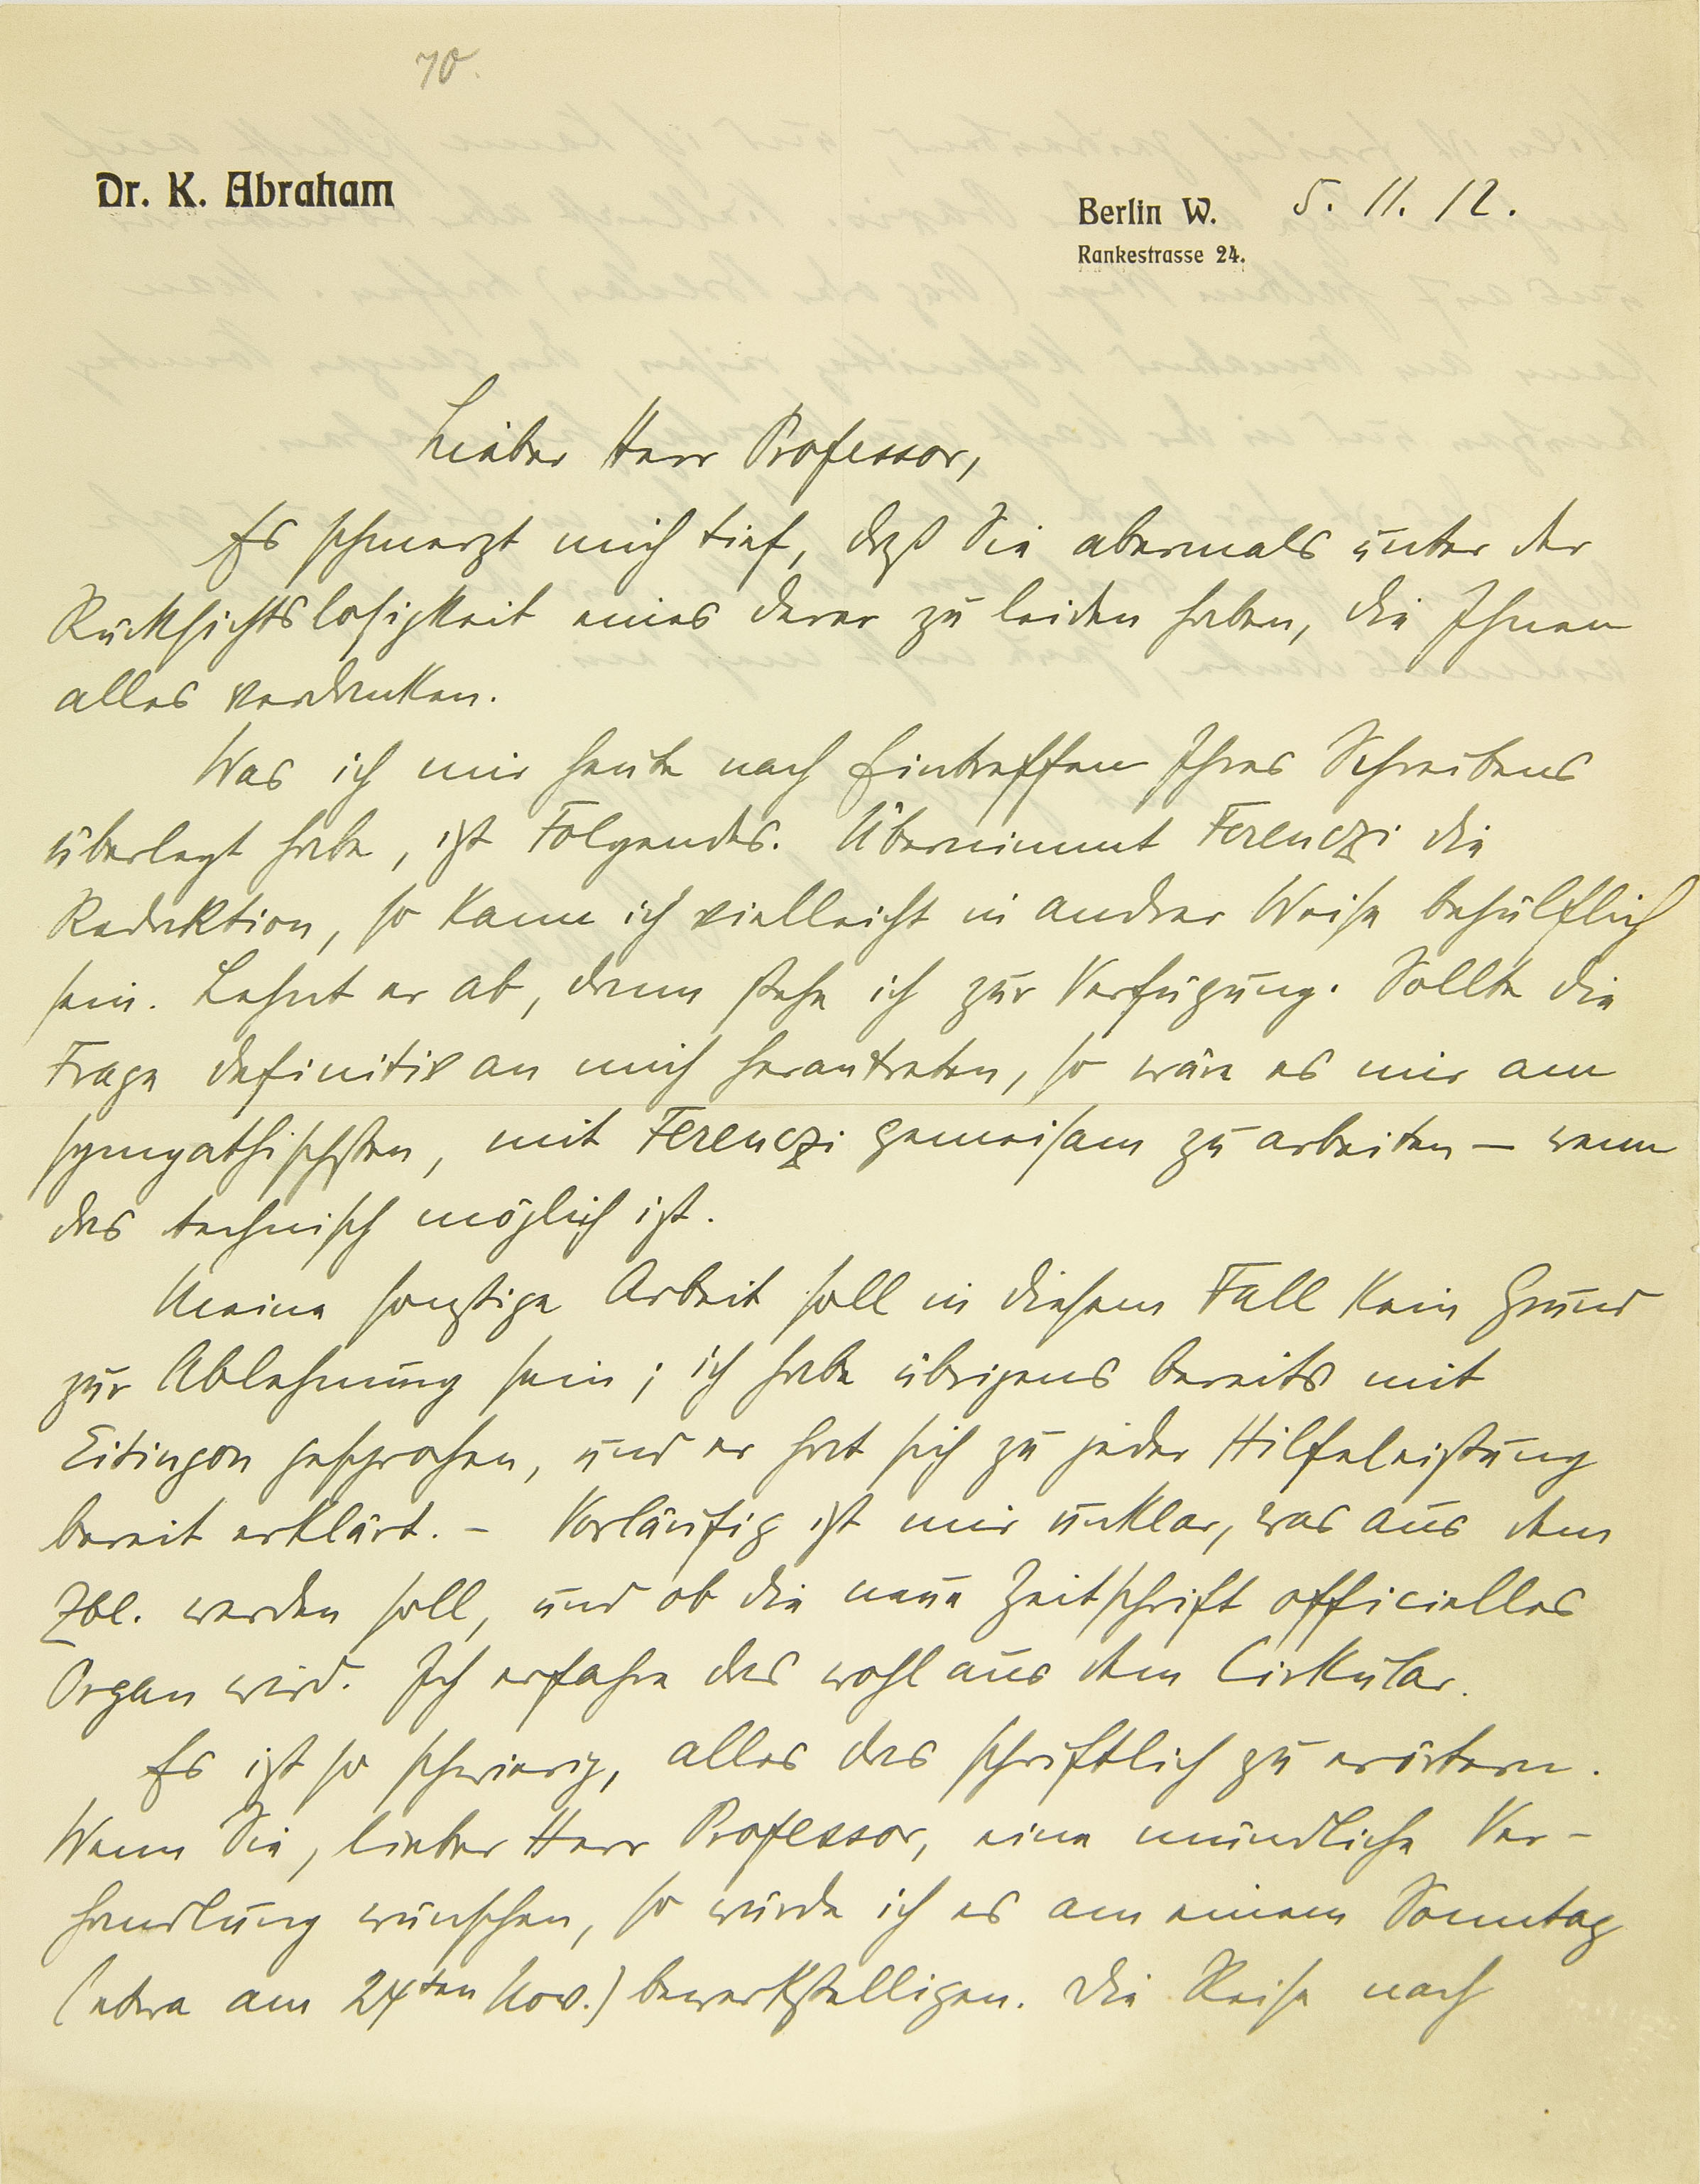 70.
Dr. K. Abraham
Berlin W. 5. 11. 12.
Rankestrasse 24.
Lieber Herr Professor,
Es schmerzt mich tief, daß Sie abermals unter der
Rücksichtslosigkeit eines derer zu leiden haben, die Ihnen
alles verdanken.
Was ich mir heute nach Eintreffen Ihres Schreibens
überlegt habe, ist Folgendes. Übernimmt Ferenczi die
Redaktion, so kann ich vielleicht in andrer Weise behülflich
sein. Lehnt er ab, dann stehe ich zur Verfügung. Sollte die
Frage definitiv an mich herantreten, so wäre es mir am
sympathischsten, mit Ferenczi gemeinsam zu arbeiten – wenn
das technisch möglich ist.
Meine sonstige Arbeit soll in diesem Fall kein Grund
zur Ablehnung sein; ich habe übrigens bereits mit
Eitingon gesprochen, und er hat sich zu jeder Hilfeleistung
bereit erklärt. – Vorläufig ist mir unklar, was aus dem
Zbl. werden soll, und ob die neue Zeitschrift officielles
Organ wird. Ich erfahre das wohl aus dem Cirkular.
Es ist so schwierig, alles das schriftlich zu erörtern.
Wenn Sie, lieber Herr Professor, eine mündliche Ver-
handlung wünschen, so würde ich es an einem Sonntag
(etwa am 24ten Nov.) bewerkstelligen. Die Reise nach